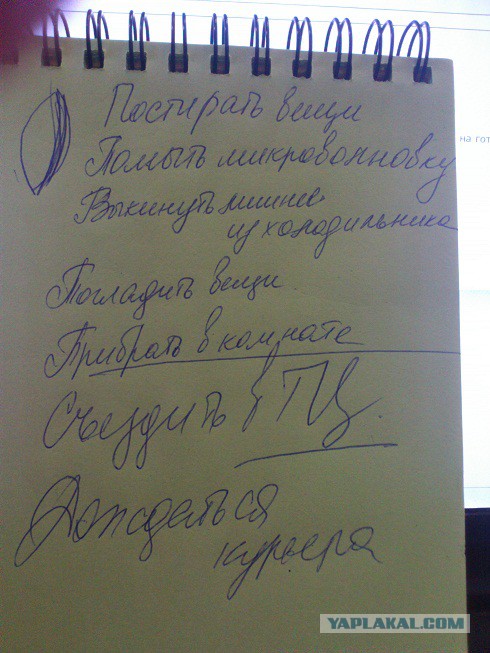 Постирать вещи
Помыть микроволновку
Выкинуть лишнее
из холодильника
Погладить вещи
Прибрать в комнате
Съездить в ТЦ.
Дождаться
курьера
на гот
YAPLAKAL.COM